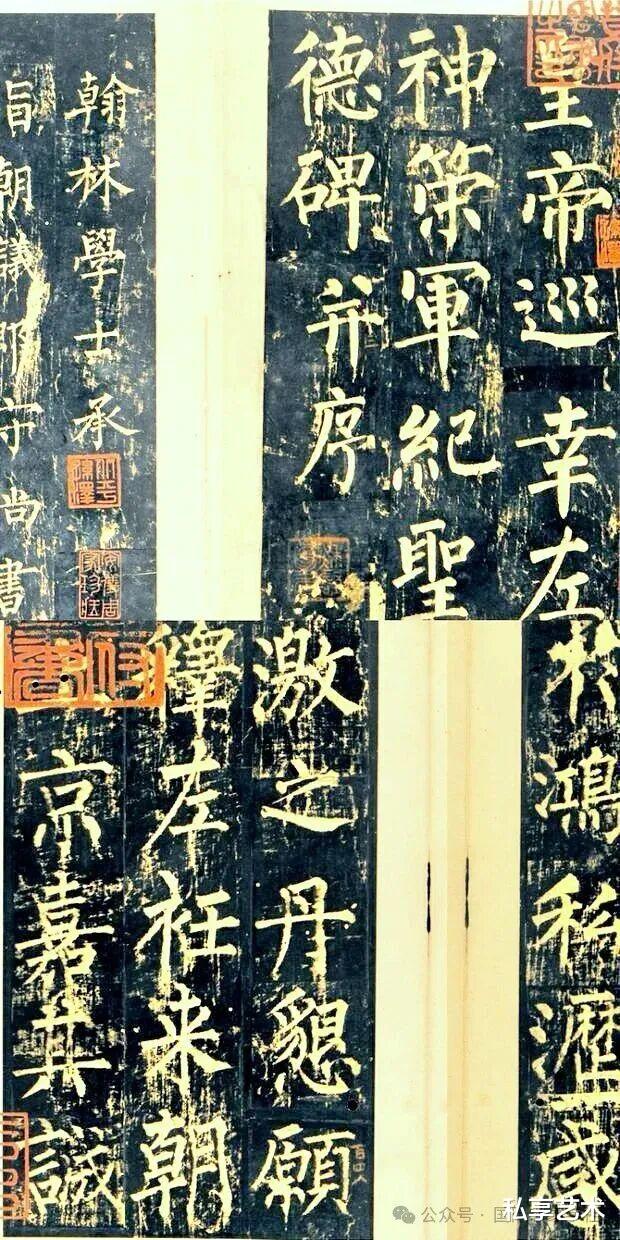 皇帝巡幸左
神策軍紀聖
德碑并序
翰林學士承
旨朝議郎守尚書
於鴻私瀝感
激之丹懇願
釋左衽来朝
京嘉其誠
公众号·国
私享艺术